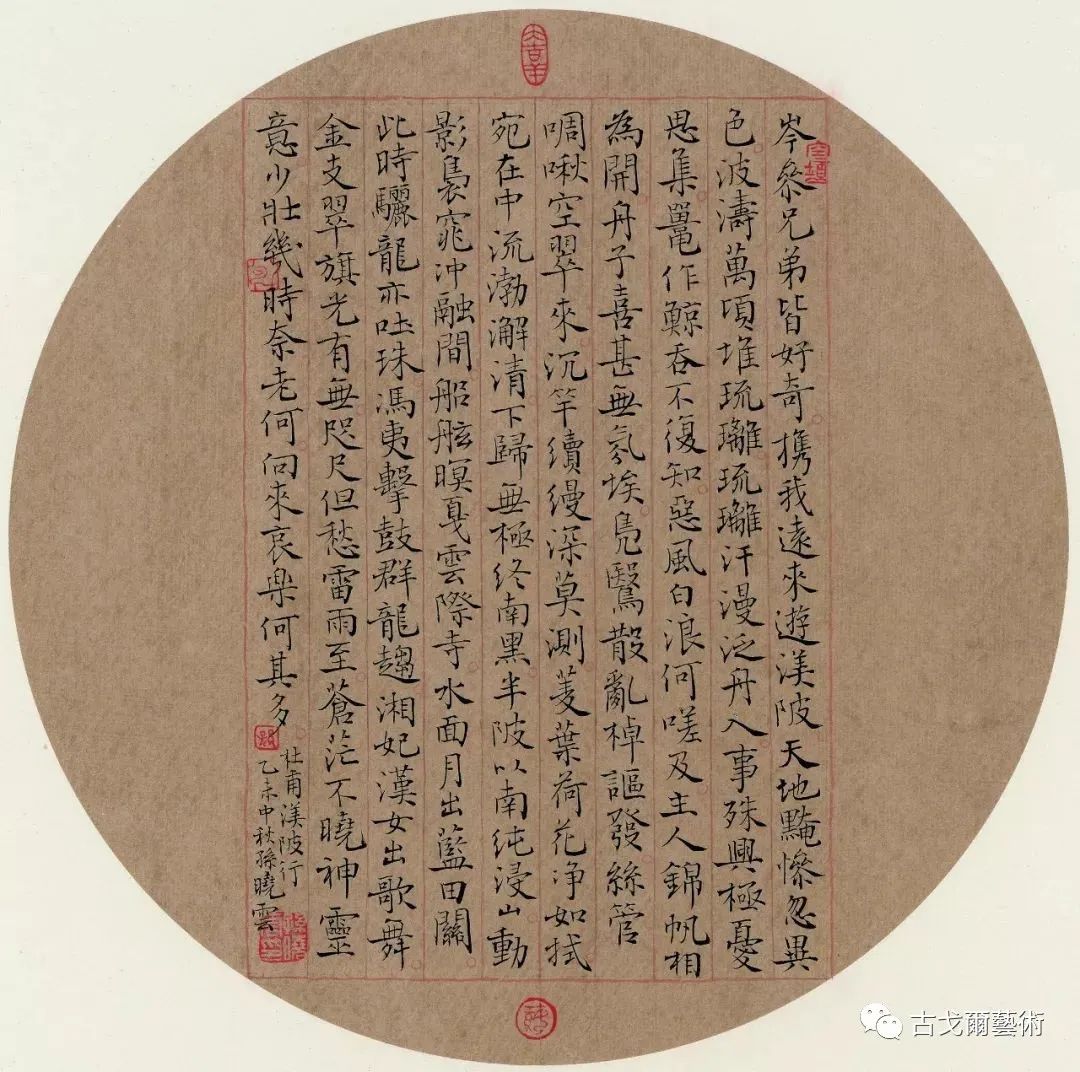 岑參兄弟皆好奇攜我遠來遊渼陂天地黤慘忽異
色波濤萬頃堆琉璃琉璃汗漫泛舟入事殊興極憂
思集鼉作鯨吞不復知惡風白浪何嗟及主人錦帆相
為開舟子喜甚無氛埃鳧鷖散亂棹謳發絲管
啁啾空翠來沉竿續縵深莫測菱葉荷花净如拭
宛在中流渤澥清下歸無極終南黑半陂以南純浸山動
影裊窕冲融間船舷暝戛雲際寺水面月出藍田關
此時驪龍亦吐珠馮夷擊鼓群龍趨湘妃漢女出歌舞
金支翠旗光有無咫尺但愁雷雨至蒼茫不曉神靈
意少壯幾時奈老何向來哀樂何其多
杜甫渼陂行
乙未中秋孫曉雲
古戈爾藝術